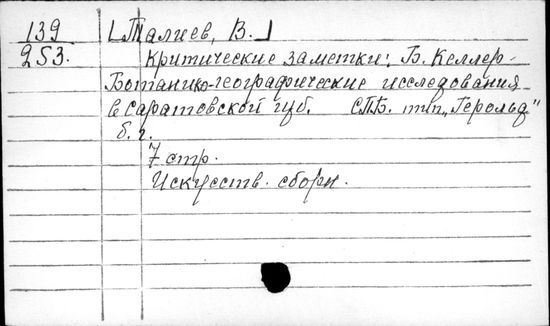 139 [Талиев, В.]
253. Критические заметки: Б. Келлер-
Ботанико-географические исследования
в Саратовской губ. СПБ. тип. „Герольд"
б. г.
7 стр.
Искусств. сборн.